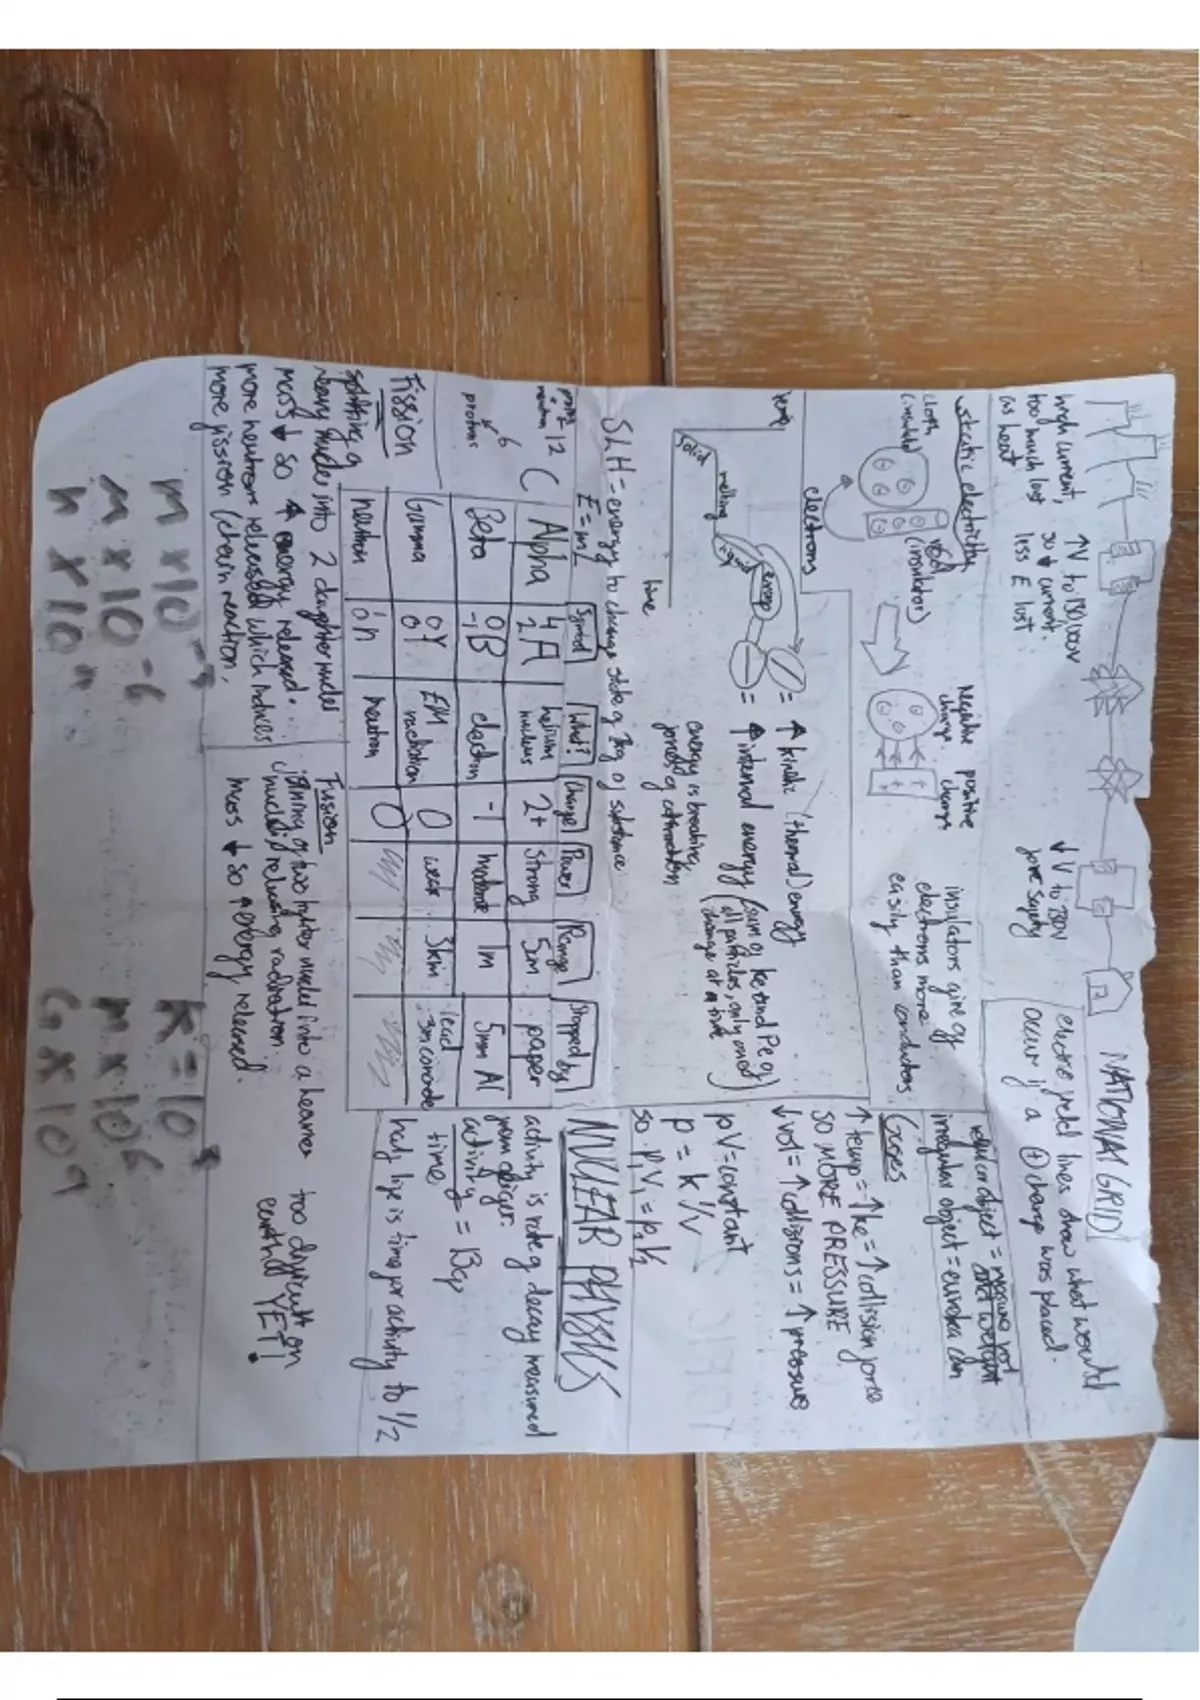 NATIONAL GRID
high current,
too much lost
as heat
↑V to 130,000V
so ↓ current.
less E lost
↓V to 230V
for safety
electric field lines show what would
occur if a ⊕ charge was placed.
static electricity
cloth
(insulator)
rod
(insulator)
electrons
negative
charge
positive
charge
insulators give off
electrons more
easily than conductors
regular object = measure
irregular object = eureka can
Gases
↑temp = ↑ke = ↑collision force
so MORE PRESSURE
↓vol = ↑collisions = ↑pressure
pV=constant
p = k 1/v
so p₁V₁ = p₂V₂
temp
solid
melting
liquid
evap
time
= ↑ kinetic (thermal) energy
= ↑ internal energy (sum of ke and Pe of
all particles, only one
change at a time)
energy is breaking
forces of attraction
SLH = energy to change state of 1kg of substance
E=mL
NUCLEAR PHYSICS
protons
+
neutrons
12
C
6
protons
Symbol What? Charge Power Range Stopped by
Alpha 4 2 A helium nucleus 2+ strong 5cm paper
Beta 0 -1 B electron -1 moderate 1m 5mm Al
Gamma 0 0 γ EM radiation 0 weak 3km lead .3m concrete
neutron 1 0 n neutron 0
activity is rate of decay measured
from geiger.
activity = Bq
time
half life is time for activity to 1/2
Fission
splitting of
heavy nuclei into 2 daughter nuclei
mass ↓ so ↑ energy released.
more neutrons released which induces
more fission (chain reaction.
Fusion
joining of two lighter nuclei into a heavier
nuclei, releasing radiation.
mass ↓ so ↑ energy released.
too difficult on
earth YET!
m x10⁻³
m x10⁻⁶
n x10⁻⁹
k = 10³
m x 10⁶
G x 10⁹